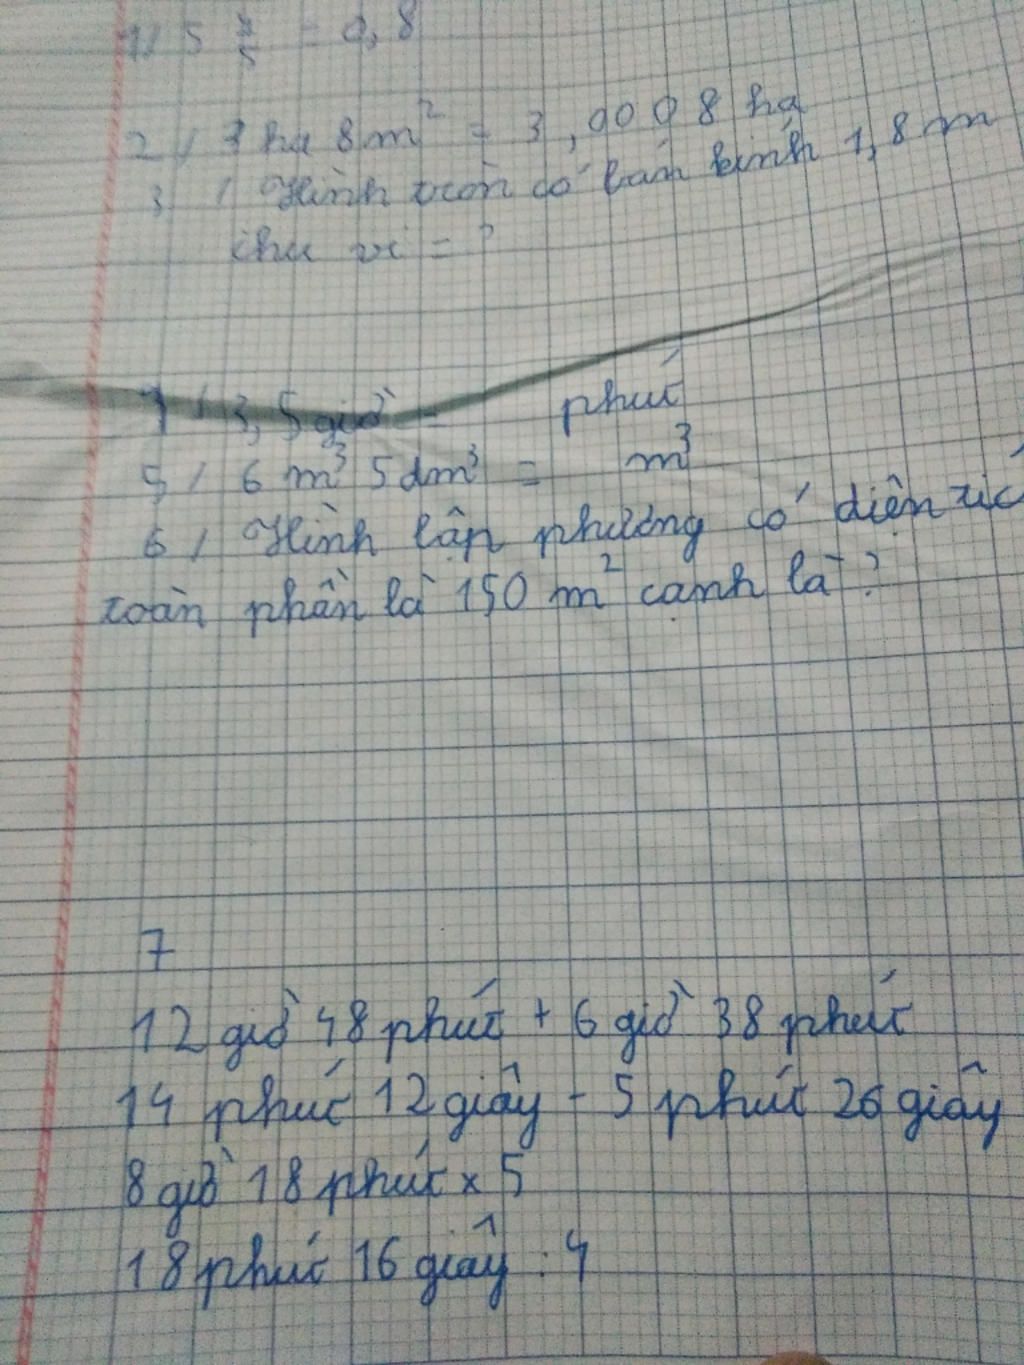 = 0,8
2 / 3 ha 8 m² = 3,0008 ha
3 / Hình tròn có bán kính 1,8 m
chu vi = ?
/ 3,5 giờ = phút
5 / 6 m³ 5 dm³ = m³
6 / Hình lập phương có diện
toàn phần là 150 m² cạnh là ?
7
12 giờ 48 phút + 6 giờ 38 phút
14 phút 12 giây - 5 phút 26 giây
8 giờ 18 phút x 5
18 phút 16 giây : 4